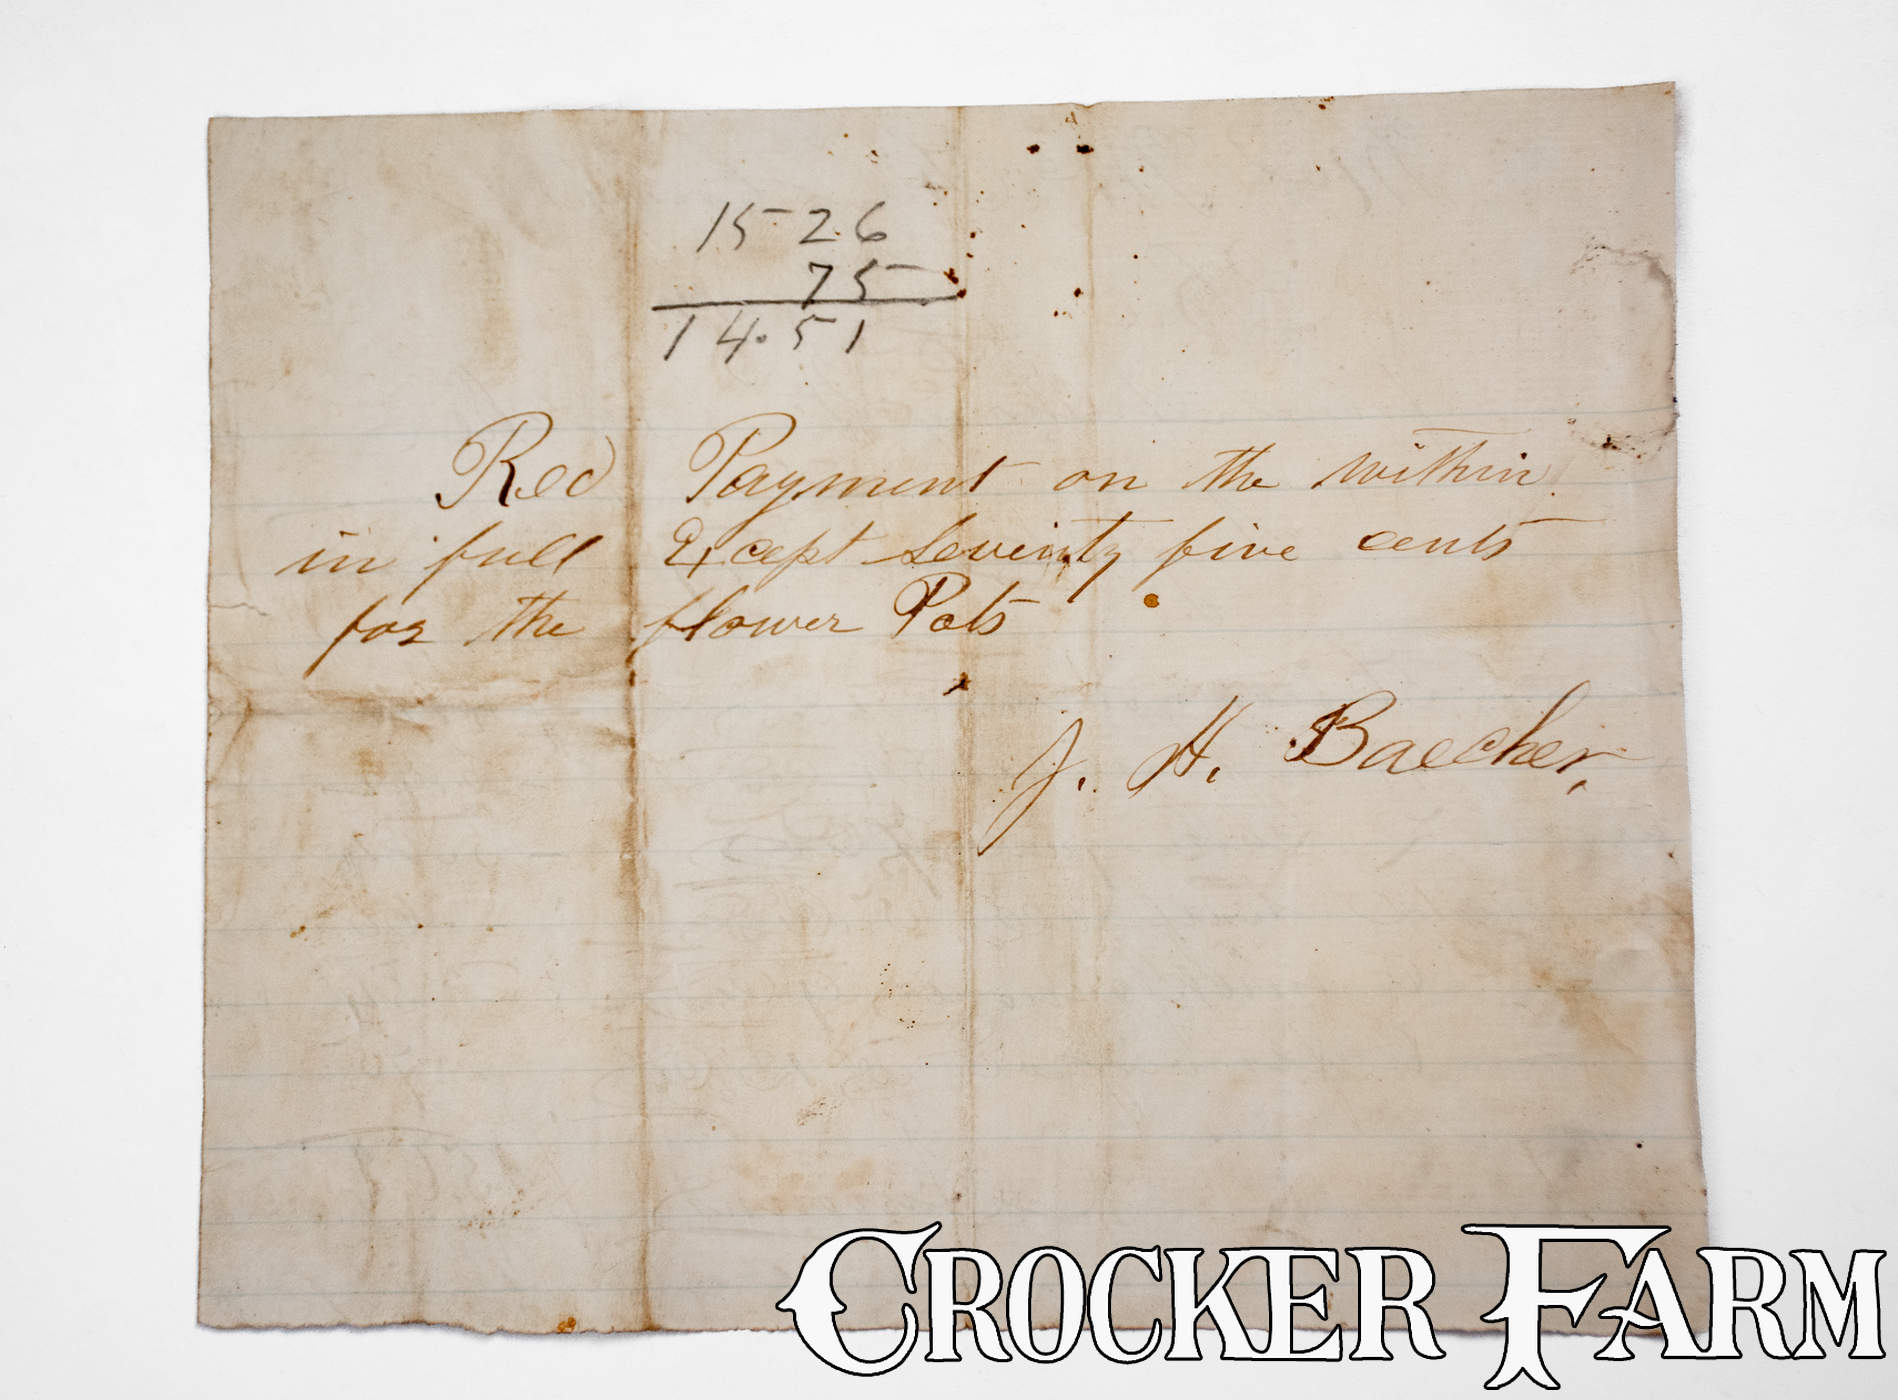 15 26
75
14.51
Rec Payment on the within
in full Except Seventy five cents
for the flower Pots
J. H. Baecher.
CROCKER FARM